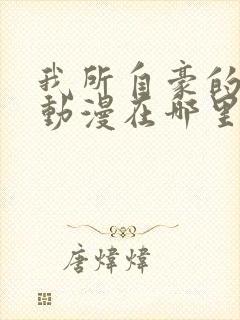 我所自豪的
動漫在哪里
唐煒煒